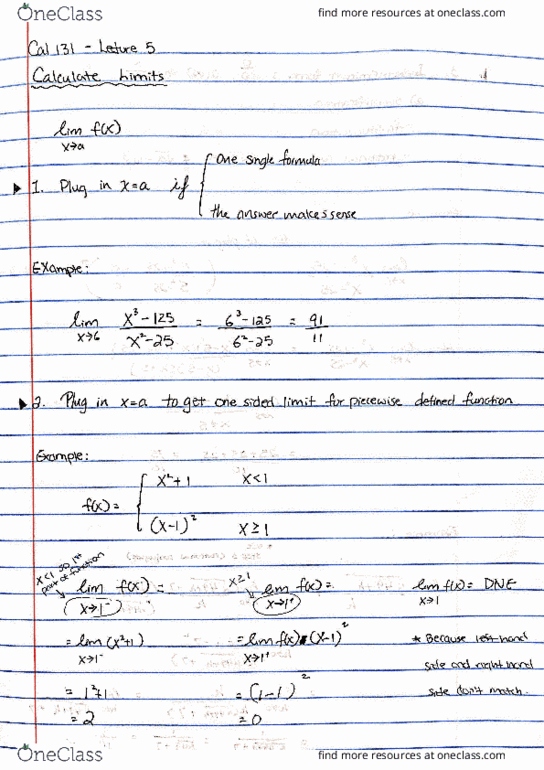 OneClass find more resources at oneclass.com
Cal 131 - Leture 5
Calculate Limits
lim f(x)
x→a
1. Plug in x=a if { One single formula
the answer makes sense
Example:
lim x³-125 = 6³-125 = 91
x→6 x²-25 6²-25 11
2. Plug in x=a to get one sided limit for piecewise defined function
Example:
f(x) = { x²+1 x<1
(x-1)² x≥1
x<1 so 1st part of function
lim f(x) = x≥1 lim f(x) = lim f(x) = DNE
x→1⁻ x→1⁺ x→1
= lim (x²+1) = lim f(x) (x-1)² * Because left hand
x→1⁻ x→1⁺ side and right hand
= 1²+1 = (1-1)² side don't match.
= 2 = 0
OneClass find more resources at oneclass.com